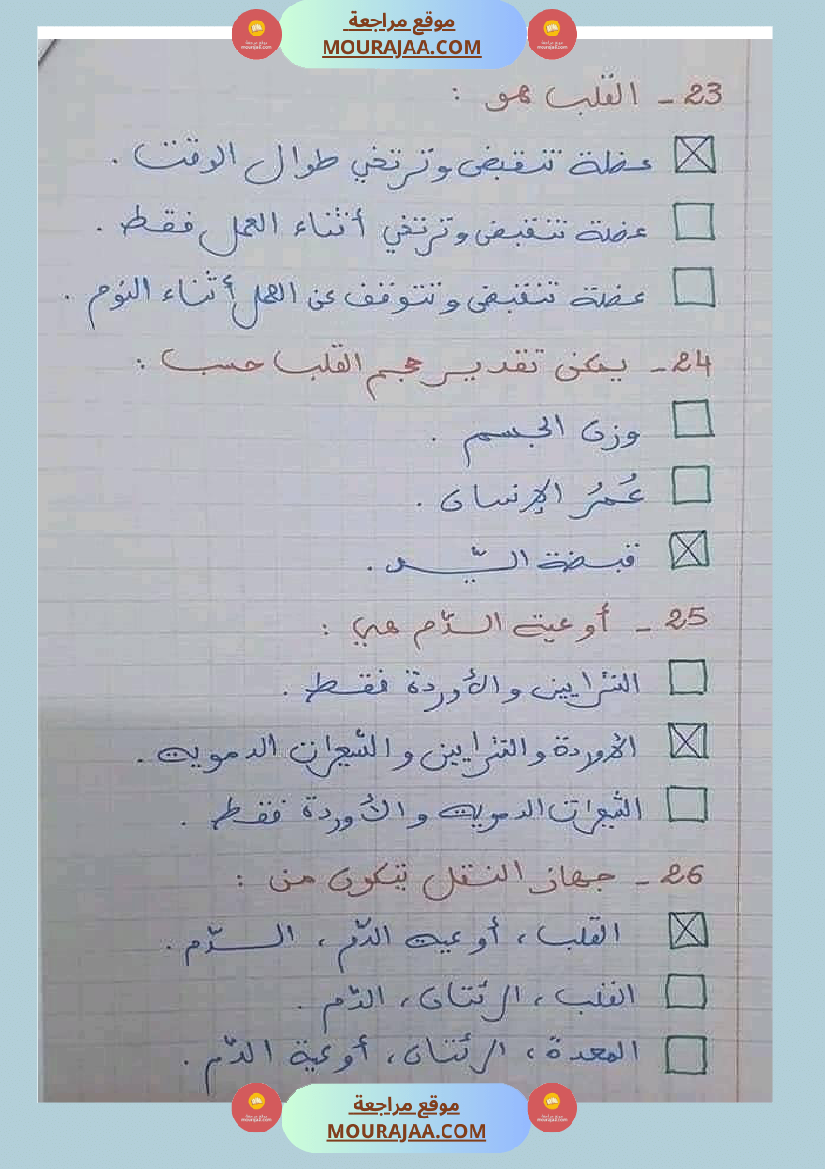 موقع مراجعة
MOURAJAA.COM
23 - القلب هو :
☒ عضلة تنقبض وترتخي طوال الوقت .
☐ عضلة تنقبض وترتخي أثناء العمل فقط .
☐ عضلة تنقبض وتتوقف عن العمل أثناء النوم .
24 - يمكن تقدير حجم القلب حسب :
☐ وزن الجسم .
☐ عُمُرُ الإنسان .
☒ قبضة اليّد .
25 - أوعية الدّم هي :
☐ الشرايين والأوردة فقط .
☒ الأوردة والشرايين والشّعيرات الدموية .
☐ الشعيرات الدموية والأوردة فقط .
26 - جهاز النقل يتكون من :
☒ القلب، أوعية الدّم، الدّم .
☐ القلب، الرئتان، الدّم .
☐ المعدة، الرئتان، أوعية الدّم .
موقع مراجعة
MOURAJAA.COM